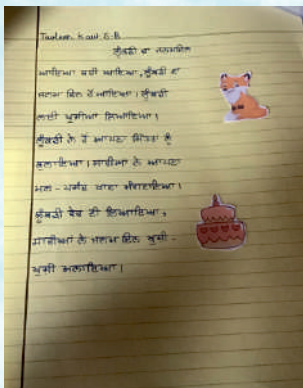 ਲੂੰਬੜੀ ਦਾ ਜਨਮਦਿਨ
ਆਇਆ ਬਈ ਆਇਆ, ਲੂੰਬੜੀ ਦਾ
ਜਨਮ ਦਿਨ ਹੈ ਆਇਆ।ਲੂੰਬੜੀ
ਲਈ ਖੁਸ਼ੀਆਂ ਲਿਆਇਆ।
ਲੂੰਬੜੀ ਨੇ ਹੈ ਆਪਣਾ ਮਿੱਤਰਾਂ ਨੂੰ
ਬੁਲਾਇਆ।ਸਾਰੀਆਂ ਨੇ ਆਪਣਾ
ਮਨ-ਪਸੰਦ ਖਾਣਾ ਮੰਗਵਾਇਆ।
ਲੂੰਬੜੀ ਕੇਕ ਵੀ ਲਿਆਇਆ,
ਸਾਰੀਆਂ ਨੇ ਜਨਮ ਦਿਨ ਖੁਸ਼ੀ-
ਖੁਸ਼ੀ ਮਨਾਇਆ।